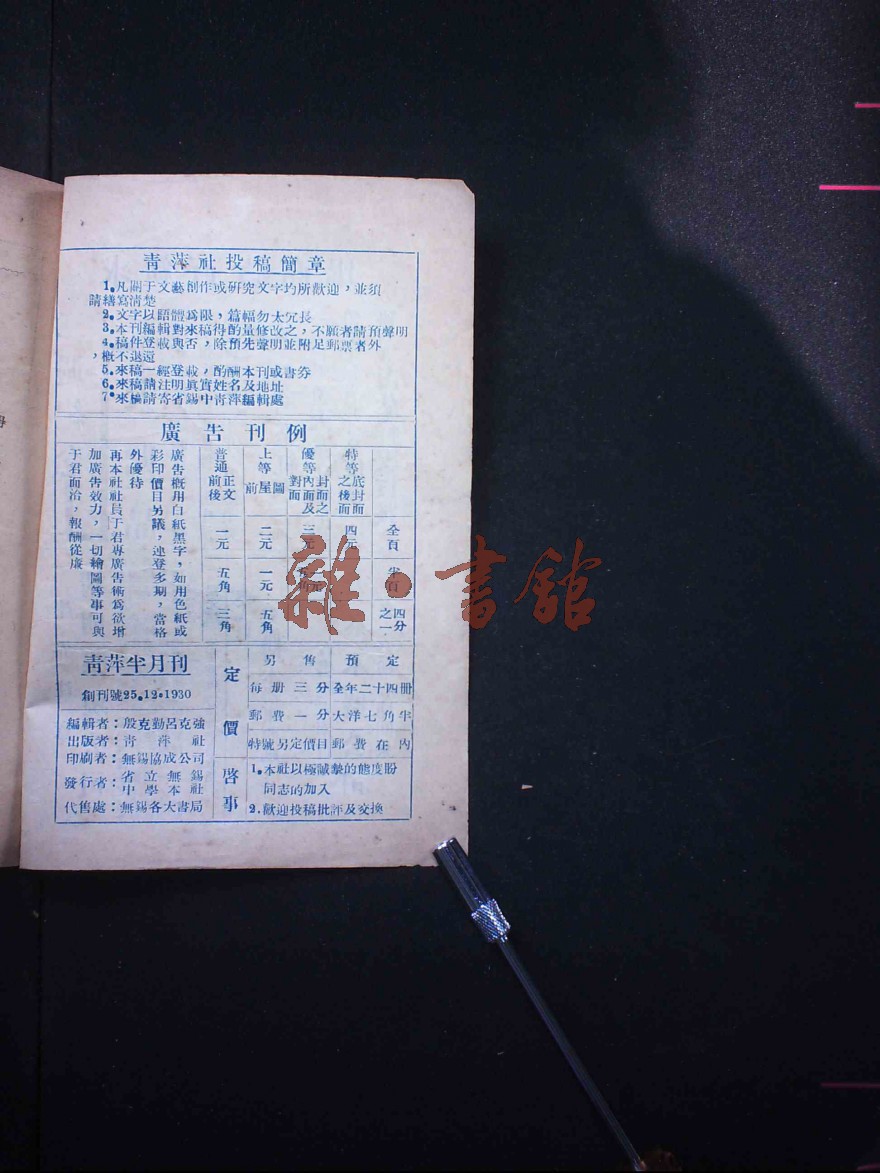 青萍社投稿簡章
1.凡關于文藝創作或研究文字均所歡迎，並須
請繕寫清楚
2.文字以語體爲限，篇幅勿太冗長
3.本刊編輯對來稿得酌量修改之，不願者請預聲明
4.稿件登載與否，除預先聲明並附足郵票者外
，概不退還
5.來稿一經登載，酌酬本刊或書劵
6.來稿請注明眞實姓名及地址
7.來稿請寄省錫中青萍編輯處
廣告刊例
特等 底封面之後面
優等 封面之內面及對面
上等 圖屋前
普通 正文前後
全頁 四元 三元 二元 一元
半頁 元 一元 五角
四分之一 五角 三角
廣告概用白紙黑字，如用色紙或
彩印價目另議，連登多期，當格
外優待
再本社社員于君專廣告術爲欲增
加廣告效力，一切繪圖等事可與
于君面洽，報酬從廉
青萍半月刊
創刊號25.12.1930
編輯者：殷克勤呂克強
出版者：青萍社
印刷者：無錫協成公司
發行者：省立無錫中學本社
代售處：無錫各大書局
定價
另售 預定
每册三分 全年二十四册
郵費一分 大洋七角半
特號另定價目 郵費在內
啓事
1.本社以極誠摯的態度盼
同志的加入
2.歡迎投稿批評及交換
雜·書館